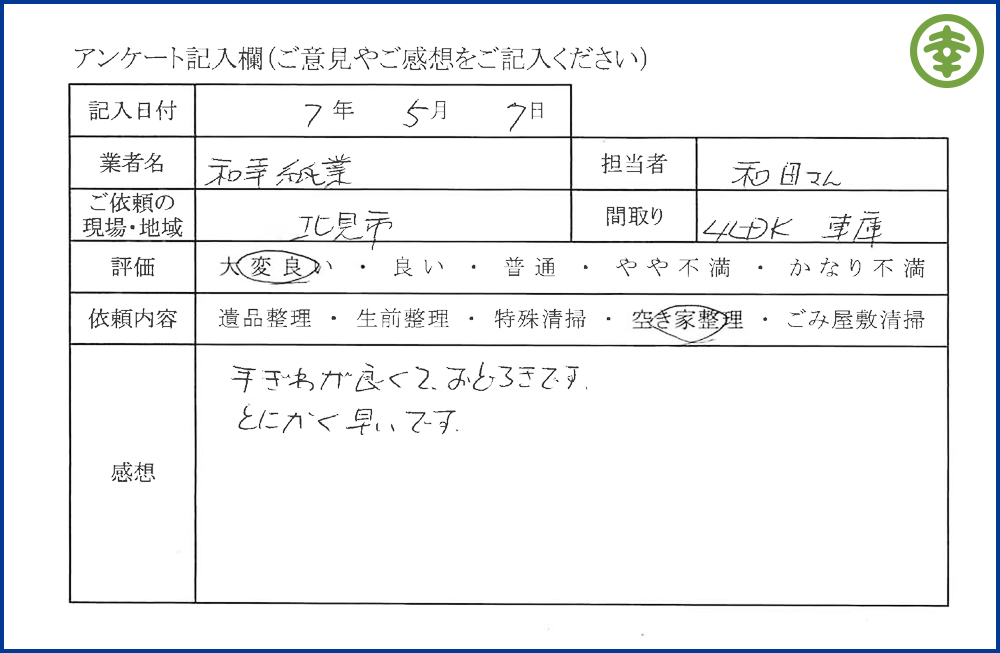 幸
アンケート記入欄(ご意見やご感想をご記入ください)
記入日付 7年 5月 7日
業者名 和幸紙業 担当者 和田さん
ご依頼の現場・地域 北見市 間取り 4LDK 車庫
評価 大変良い・良い・普通・やや不満・かなり不満
依頼内容 遺品整理・生前整理・特殊清掃・空き家整理・ごみ屋敷清掃
感想
手ぎわが良くて、おどろきです.
とにかく早いです.